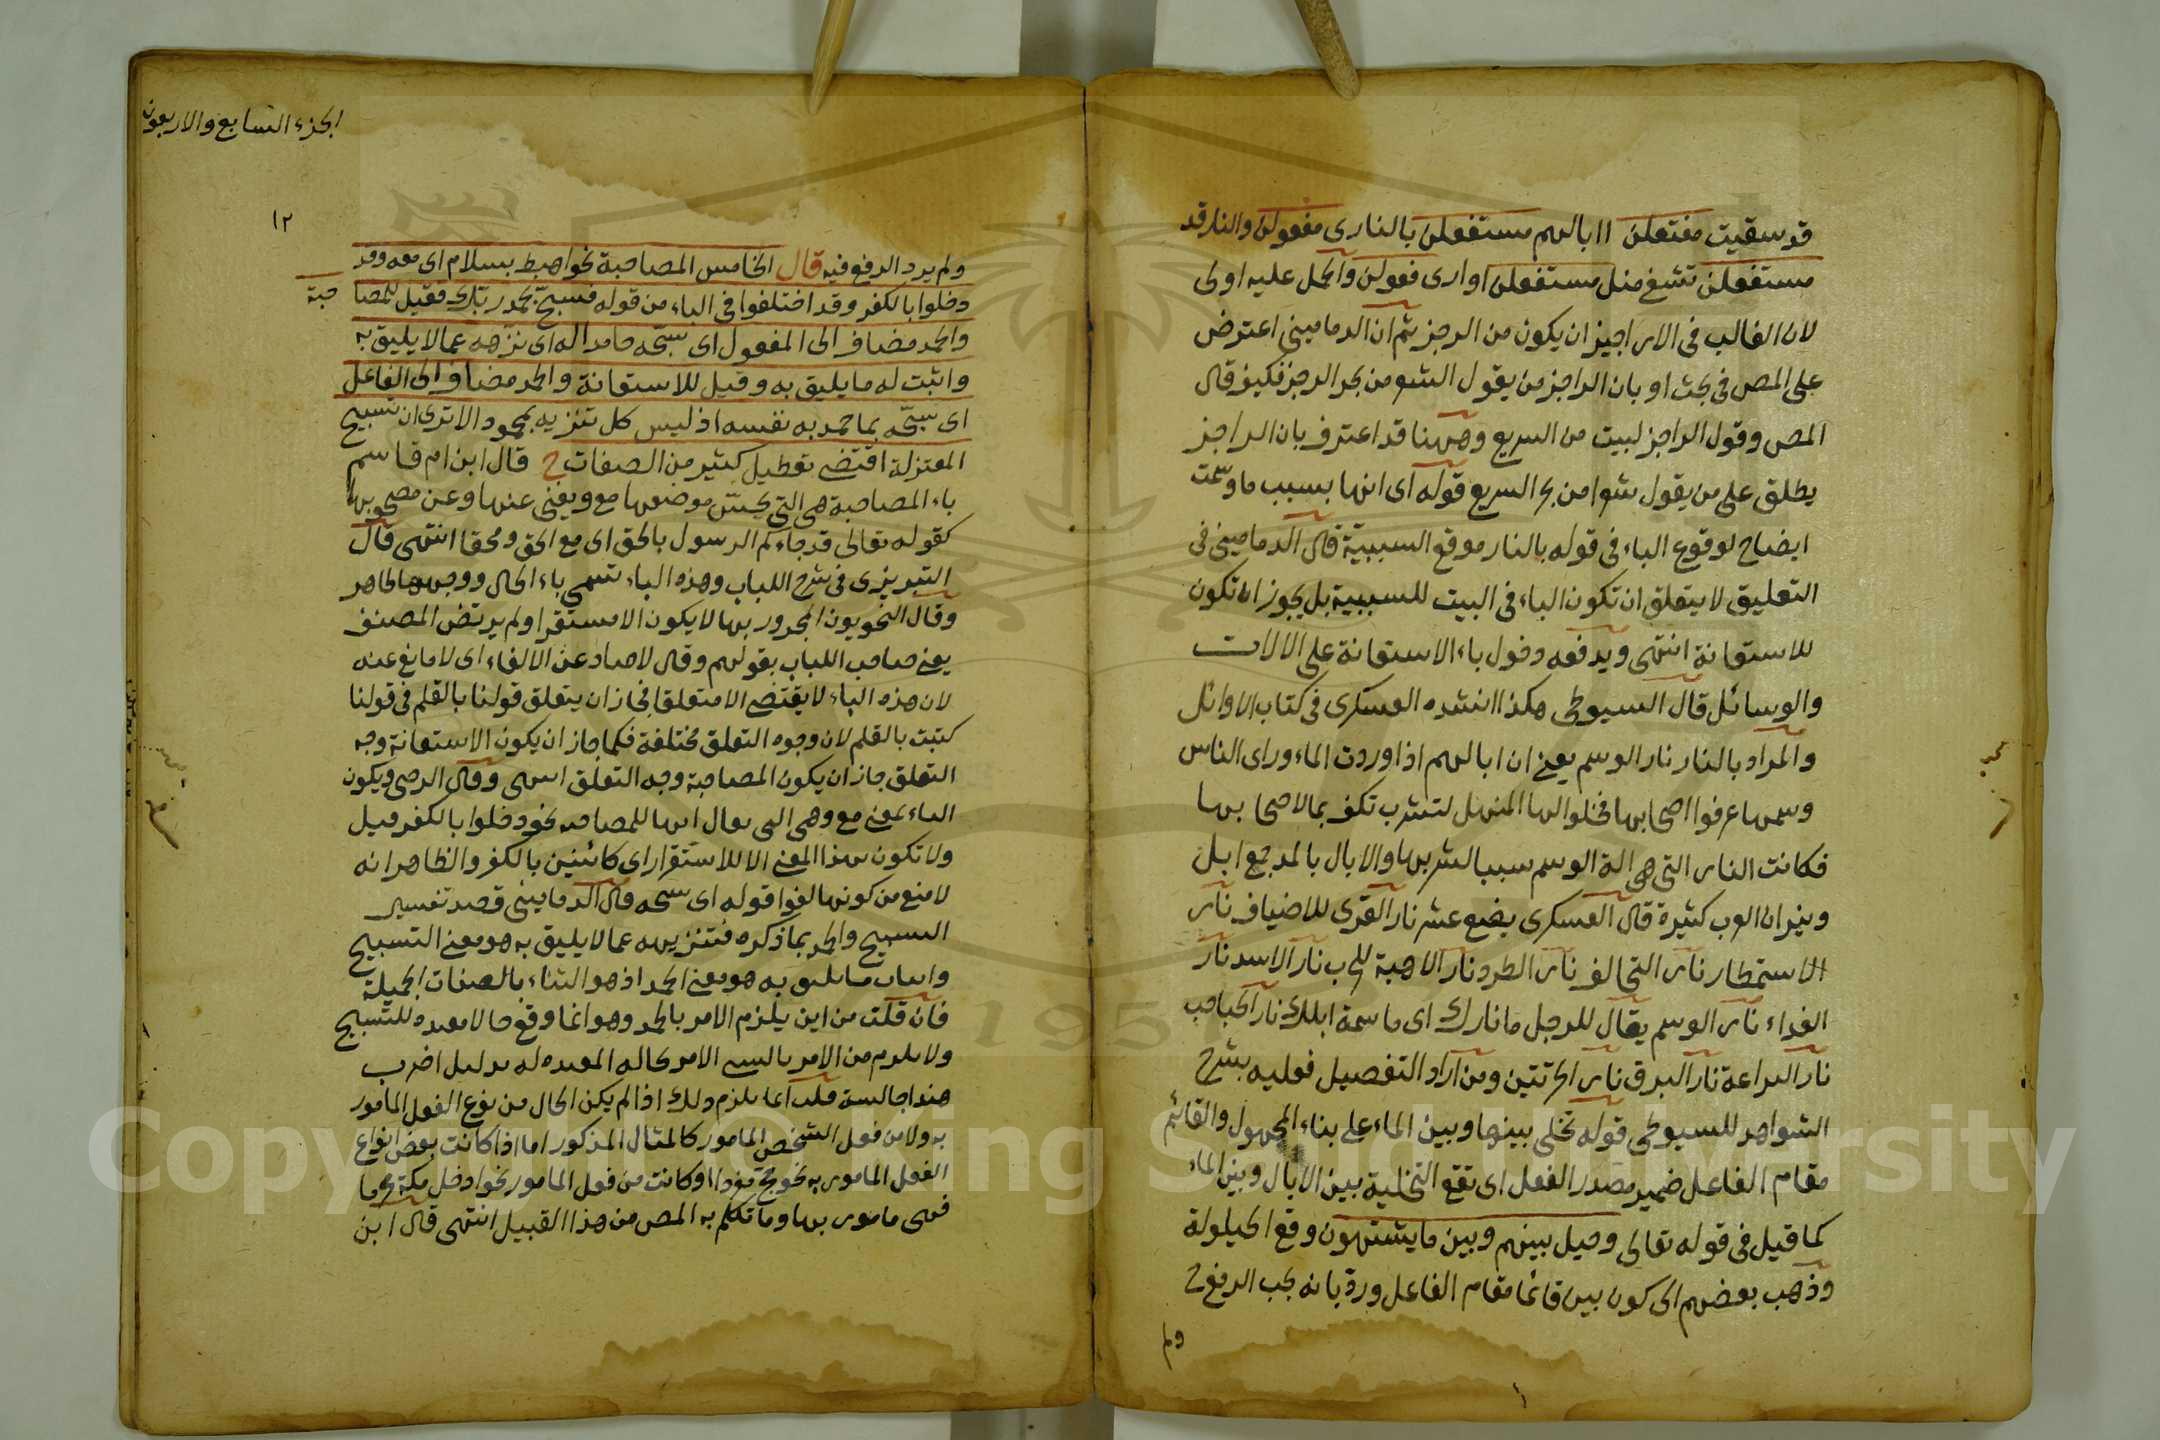 قد سقيت مفتعلن اابالهم مستفعلن بالنارى مفعولن والنار قد
مستفعلن تشفع منل مستفعلن اوارى فعولن والحمل عليه اولى
لان الغالب فى الاراجيز ان يكون من الرجز ثم ان الدمامينى اعترض
على المص فى بحث او بان الراجز من يقول الشعر من بحر الرجز فكيف قال
المص وقول الراجز لبيت من السريع وههنا قد اعترف بان الراجز
يطلق على من يقول شعرا من بحر السريع قوله اى انها بسبب ما وسمت
ايضاح لوقوع الباء فى قوله بالنار موقع السببية قال الدمامينى فى
التعليق لا يتعلق ان تكون الباء فى البيت للسببية بل يجوز ان تكون
للاستعانة انتهى ويدفعه دخول باء الاستعانة على الالات
والوسائل قال السيوطى هكذا انشده العسكرى فى كتاب الاوائل
والمراد بالنار نار الوسم يعنى ان ابالهم اذا وردت الماء وراى الناس
وسمها عرفوا اصحابها فخلوا لها المنهل لتشرب تكف بمالا صحابها
فكانت النار التى هى الة الوسم سببا لشربها والابال بالمد جمع ابل
ونيران العرب كثيرة قال العسكرى بضع عشر نار القرى للاضياف نار
الاستمطار نار التحالف نار الطرد نار الاهبة للحرب نار الاسد نار
الفداء نار الوسم يقال للرجل ما نارك اى ما سمة ابلك نار الحباحب
نار اليراعة نار البرق نار الحرتين ومن اراد التفصيل فعليه بشرح
الشواهد للسيوطى قوله تخلى بينها وبين الماء على بناء المجهول والقائم
مقام الفاعل ضمير مصدر الفعل اى تقع التخلية بين الابال وبين الماء
كما قيل فى قوله تعالى وحيل بينهم وبين ما يشتهون وقع الحيلولة
وذهب بعضهم الى كون بين قائما مقام الفاعل ورد بانه يجب الرفع ح
ولم
الجزء السابع والاربعون
١٢
ولم يرد الرفع فيه قال الخامس المصاحبة نحو اهبط بسلام اى معه وقد
دخلوا بالكفر وقد اختلفوا فى الباء من قوله فسبح بحمد ربك فقيل للمصا
حبة
والحمد مضاف الى المفعول اى سبحه حامدا له اى نزهه عما لا يليق به
واثبت له ما يليق به وقيل للاستعانة والحمد مضاف الى الفاعل
اى سبحه بما حمد به نفسه اذ ليس كل تنزيه بمحمود الا ترى ان تسبيح
المعتزلة اقتضى تعطيل كثير من الصفات ح قال ابن ام قاسم
باء المصاحبة هى التى يحسن موضعها مع ويغنى عنها وعن مصحوبها
كقوله تعالى قد جاءكم الرسول بالحق اى مع الحق ومحقا انتهى قال
التبريزى فى شرح اللباب وهذه الباء تسمى باء الحال ووجهها ظاهر
وقال النحويون المجرور بها لا يكون الا مستقرا ولم يرتض المصنف
يعنى صاحب اللباب بقولهم وقال لا صاد عن الالغاء اى لا مانع عنه
لان هذه الباء لا يقتضى الا متعلقا فجاز ان يتعلق قولنا بالقلم فى قولنا
كتبت بالقلم لان وجوه التعلق مختلفة فكما جاز ان يكون الاستعانة وجه
التعلق جاز ان يكون المصاحبة وجه التعلق انتهى وقال الرضى ويكون
الباء بمعنى مع وهى التى يقال لها للمصاحبة نحو دخلوا بالكفر قيل
ولا تكون بهذا المعنى الا للاستقرار اى كائنين بالكفر والظاهر انه
لا منع من كونها لغوا قوله اى سبحه قال الدمامينى قصد تفسير
التسبيح والحمد بما ذكره فتنزيهه عما لا يليق به هو معنى التسبيح
واثبات ما يليق به هو معنى الحمد اذ هو الثناء بالصفات الجميلة
فان قلت من اين يلزم الامر بالحمد وهو انما وقع حالا مقيده للتسبيح
ولا يلزم من الامر بالشئ الامر بحاله المقيده له بدليل اضرب
هندا جالسة قلت انما يلزم ذلك اذا لم يكن الحال من نوع الفعل المامور
به ولا من فعل الشخص المامور كالمثال المذكور اما اذا كانت بعض انواع
الفعل المامور به نحو حج مفردا او كانت من فعل المامور نحو ادخل مكة محرما
فهى مامور بها وما تكلم به المص من هذا القبيل انتهى قال ابن